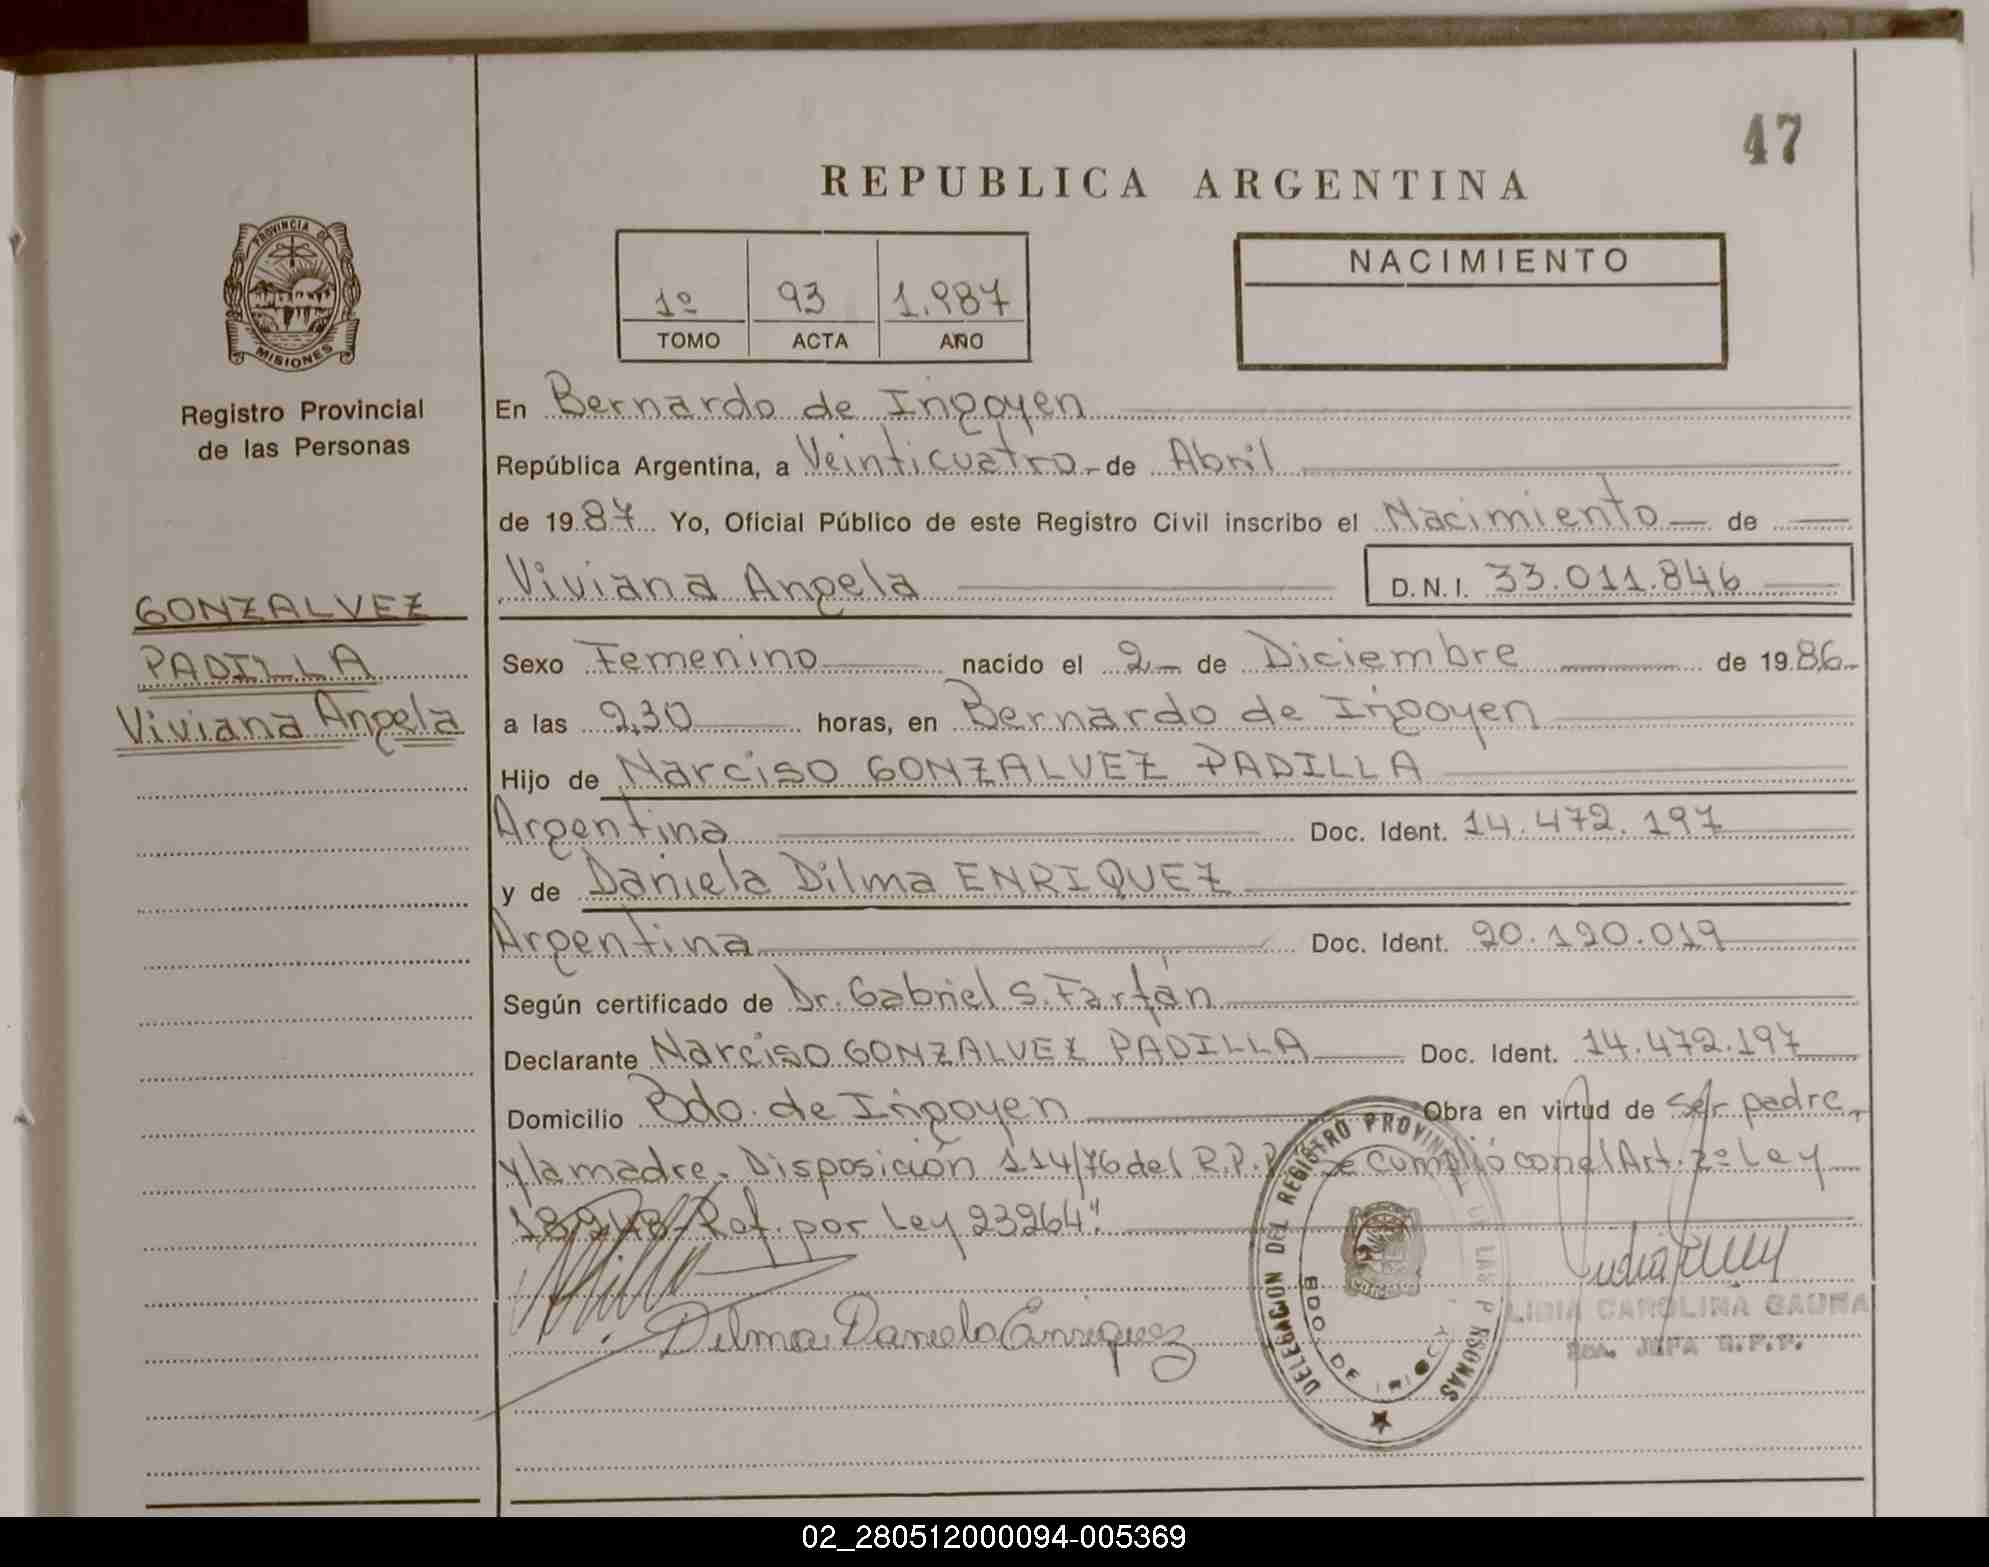 47
REPUBLICA ARGENTINA
PROVINCIA DE
MISIONES
Registro Provincial
de las Personas
1º 93 1.987
TOMO ACTA AÑO
NACIMIENTO
En Bernardo de Irigoyen
República Argentina, a Veinticuatro de Abril
de 1987 Yo, Oficial Público de este Registro Civil inscribo el Nacimiento de
Viviana Angela D.N.I. 33.011.846
GONZALVEZ
PADILLA
Viviana Angela
Sexo Femenino nacido el 2 de Diciembre de 1986
a las 2,30 horas, en Bernardo de Irigoyen
Hijo de Narciso GONZALVEZ PADILLA
Argentina Doc. Ident. 14.472.197
y de Daniela Dilma ENRIQUEZ
Argentina Doc. Ident. 20.120.019
Según certificado de Dr. Gabriel S. Farfán
Declarante Narciso GONZALVEZ PADILLA Doc. Ident. 14.472.197
Domicilio Bdo. de Irigoyen Obra en virtud de ser padre
y la madre. Disposición 114/76 del R.P.P. Se cumplió con el Art. 2º Ley
18.248 Ref. por Ley 23264".
Dilma Daniela Enriquez
DELEGACION DEL REGISTRO PROVINCIAL DE LAS PERSONAS
BDO. DE IRIGOYEN
LIDIA CAROLINA GAUNA
JEFA R.P.P.
02_280512000094-005369